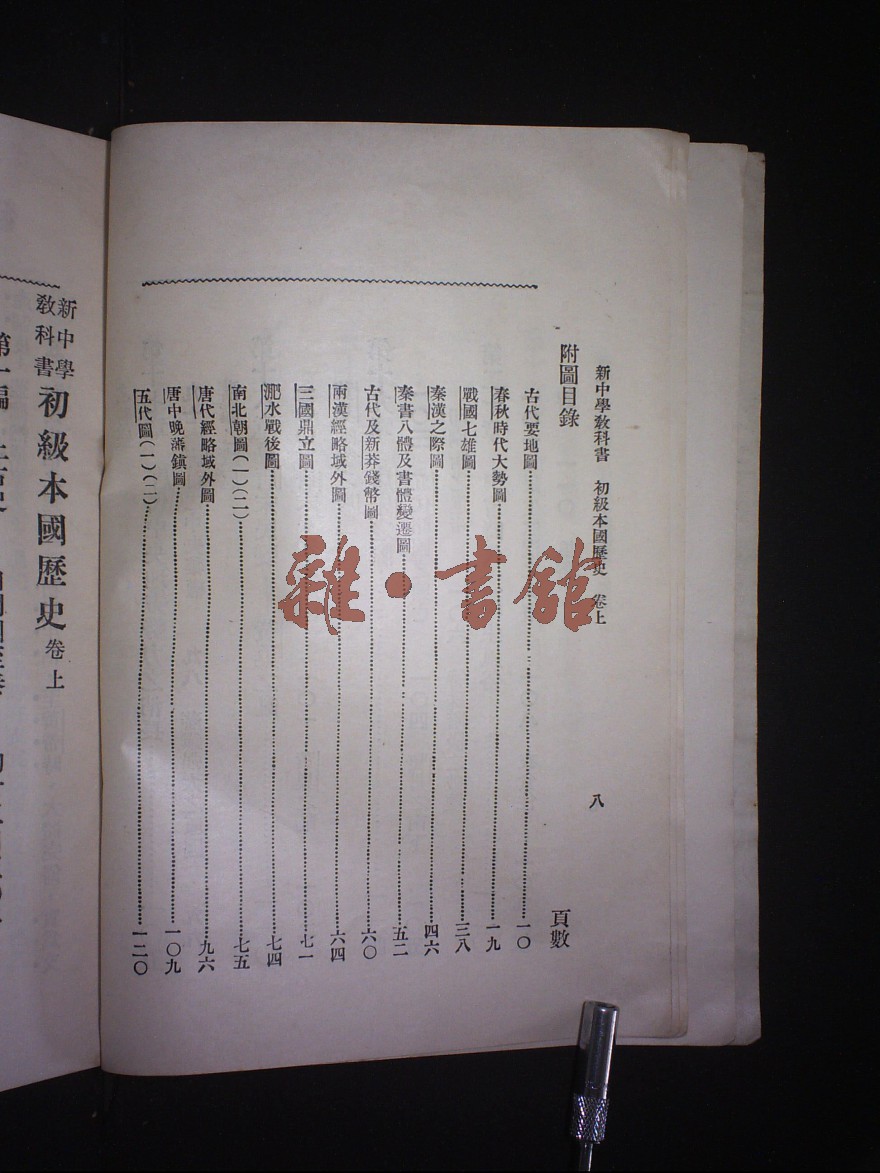 新中學敎科書　初級本國歷史　卷上
八
附圖目錄
頁數
古代要地圖……一〇
春秋時代大勢圖……一九
戰國七雄圖……三八
秦漢之際圖……四六
秦書八體及書體變遷圖……五二
古代及新莽錢幣圖……六〇
兩漢經略域外圖……六四
三國鼎立圖……七一
淝水戰後圖……七四
南北朝圖(一)(二)……七五
唐代經略域外圖……九六
唐中晚藩鎭圖……一〇九
五代圖(一)(二)……一二〇
新中學
敎科書
初級本國歷史 卷上
雜·書館